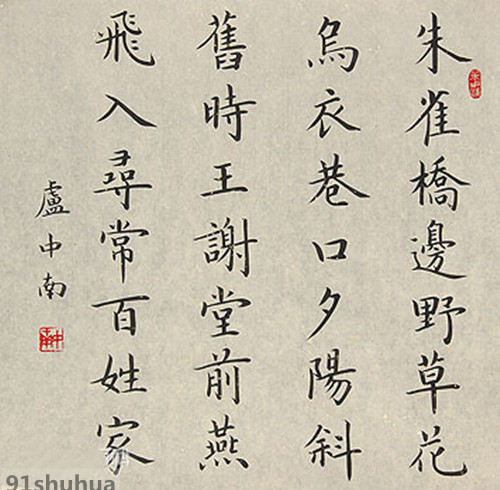 朱雀橋邊野草花
烏衣巷口夕陽斜
舊時王謝堂前燕
飛入尋常百姓家
盧中南
91shuhua